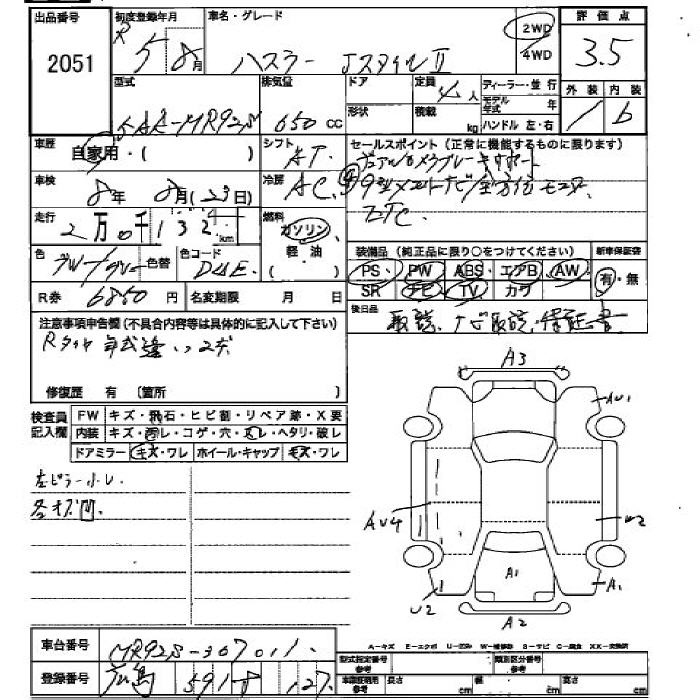 出品番号 初度登録年月 車名・グレード 2WD 4WD 評価点
2051 R5 8月 ハスラー JスタイルⅡ 3.5
型式 排気量 ドア 定員 ディーラー・並行 外装 内装
5AA-MR92S 650 cc 形状 積載 4人 kg モデル年式 年 ハンドル 左・右 1 b
車歴 自家用・( ) シフト AT セールスポイント (正常に機能するものに限ります)
デュアルカメラブレーキサポート
車検 8年 8月(23日) 冷房 AC 9型メモリーナビ/全方位モニター
ETC
走行 2万0千132km 燃料 ガソリン 軽油
色 色替 色コード D4E 装備品 (純正品に限り○をつけてください) 新車保証書
PS・ PW ABS・ エアB AW 有・無
R券 6850円 名変期限 月 日 SR ナビ TV カワ
注意事項申告欄 (不具合内容等は具体的に記入して下さい) 後日品 取説、ナビ取説、保証書
Rタイヤ 年式違い
修復歴 有 (箇所 )
検査員記入欄 FW キズ・飛石・ヒビ割・リペア跡・X要
内装 キズ・汚レ・コゲ・穴・スレ・ヘタリ・破レ
ドアミラー キズ・ワレ ホイール・キャップ キズ・ワレ
A3
AU1
左ピラー小U
各キズ凹
AU4
U2
A1
A1
U2
A2
車台番号 MR92S-307011
A-キズ E-エクボ U-凹み W-補修跡 S-サビ C-腐食 XX-交換済
登録番号 広島 591 127 型式指定番号 参考 類別区分番号 参考
車庫証明用 参考 長さ cm 幅 cm 高さ cm